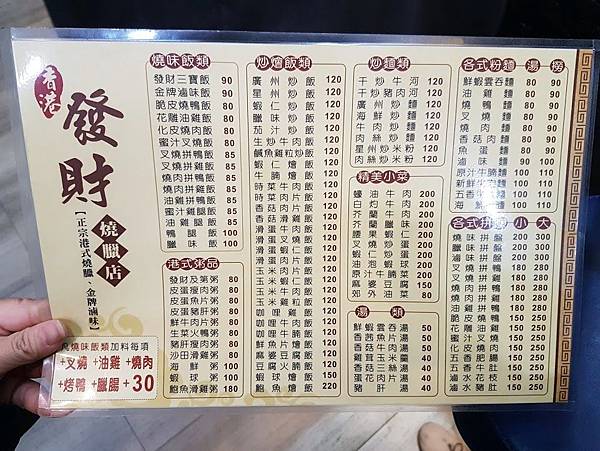 香港
發財
燒臘店
【正宗港式燒臘、金牌滷味】
燒味飯類
發財三寶飯 90
金牌滷味飯 90
脆皮燒鴨飯 85
花雕油雞飯 85
化皮燒肉飯 80
蜜汁叉燒飯 80
叉燒拼鴨飯 85
燒肉拼鴨飯 85
叉燒拼雞飯 85
燒肉拼雞飯 85
油雞拼鴨飯 85
蜜汁雞腿飯 85
油雞腿飯 100
鴨腿飯 100
臘味飯 100
港式粥品
發財及第粥 80
皮蛋瘦肉粥 80
皮蛋魚片粥 80
皮蛋豬肝粥 80
鮮牛肉片粥 80
生菜火鴨粥 80
豬肝瘦肉粥 80
沙田滑雞粥 80
海鮮粥 100
蝦球粥 100
鮑魚滑雞粥 200
燒味飯類加料每項
+叉燒 +油雞 +燒肉
+烤鴨 +臘腸 +30
炒燴飯類
廣州炒飯 120
星州炒飯 120
蝦仁炒飯 120
臘味炒飯 120
茄汁炒飯 120
生炒牛肉飯 120
鹹魚雞粒炒飯 120
蝦仁燴飯 120
牛腩燴飯 120
時菜牛肉飯 120
時菜肉片飯 120
香菇肉片飯 120
香菇滑雞飯 120
滑蛋牛肉飯 120
滑蛋叉燒飯 120
滑蛋蝦仁飯 120
玉米肉片飯 120
玉米魚片飯 120
玉米雞粒飯 120
咖哩雞飯 120
咖哩牛肉飯 120
咖哩牛腩飯 120
麻婆豆腐飯 120
蝦球燴飯 150
鮑魚燴飯 220
炒麵類
干炒牛河 120
干炒豬肉河 120
廣州炒麵 120
海鮮炒麵 120
牛肉炒麵 120
肉絲炒麵 120
星州炒米粉 120
肉絲炒米粉 120
精美小菜
蠔油牛肉 200
白灼牛肉 200
芥蘭牛肉 200
芥蘭臘味 200
腰果蝦仁 200
滑蛋蝦仁 200
油泡蝦球 200
原汁牛腩 200
麻婆豆腐 200
郊外油菜 50
湯類
鮮蝦雲吞湯 50
香茜魚片湯 50
香菇肉片湯 40
雞茸玉米羹 40
番茄蛋花湯 40
紫菜三絲湯 40
豬肝湯 40
各式粉麵 湯 撈
鮮蝦雲吞麵 80 90
油雞麵 80 90
燒鴨麵 80 90
叉燒麵 80 90
燒肉麵 80 90
香菇肉麵 80 90
魚蛋麵 80 90
滷味麵 80 90
原汁牛腩麵 90 100
新鮮牛肉麵 90 100
五香牛肚麵 90 100
各式拼盤 小 大
燒味拼盤 200 300
滷味拼盤 200 300
叉燒拼鴨 200 300
燒肉拼鴨 200 300
叉燒拼雞 200 300
燒肉拼雞 200 300
油雞拼鴨 200 300
脆皮燒鴨 150 250
花雕油雞 150 250
蜜汁叉燒 150 250
化皮燒肉 150 250
五香肥腸 150 250
五香牛肚 150 250
滷水花枝 150 250
滷水豬肚 150 250